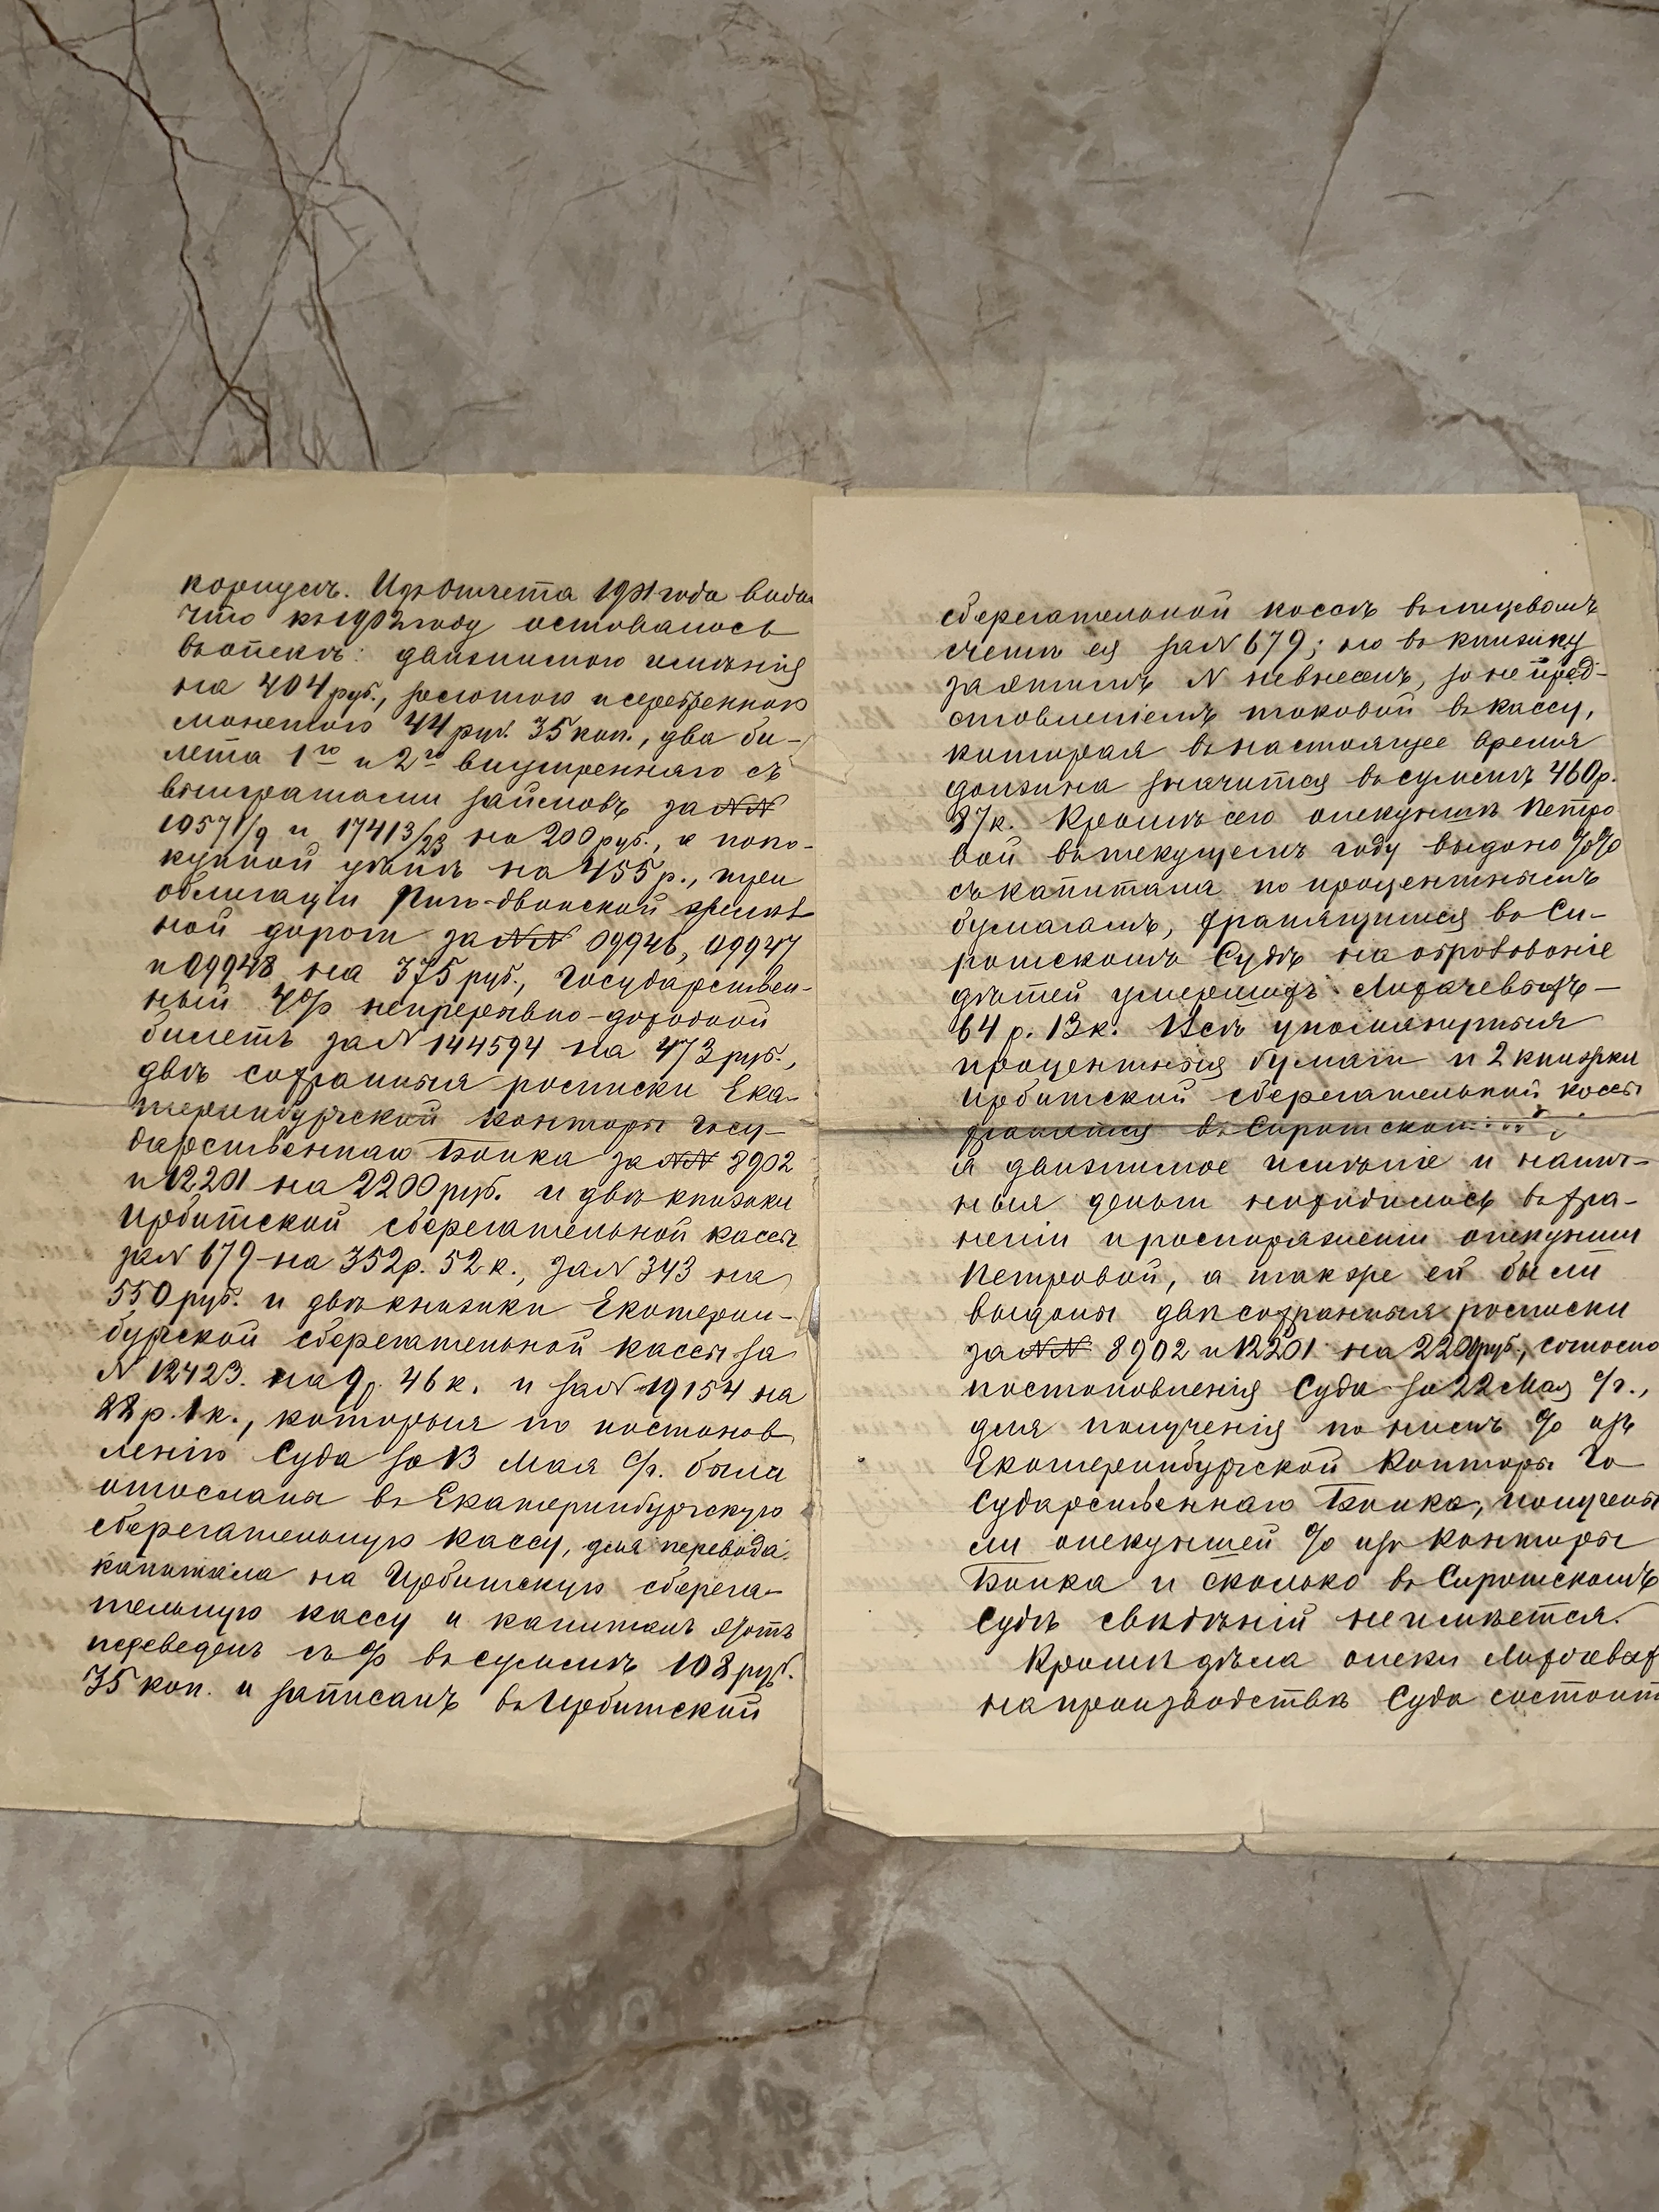 корпусѣ. Изъ Отчета 1901 года видно
что къ 1902 году оставалось
въ опекѣ: движимаго имѣнія
на 404 руб., золотою и серебренною
монетою 44 руб. 35 коп., два би-
лета 1го и 2го внутренняго съ
выиграшами займовъ за №№
10571/9 и 17413/23 на 200 руб., а по по-
купной цѣнѣ на 455 р., три
облигаціи Риго-Двинской желѣз
ной дороги за №№ 09946, 09947
и 09948 на 375 руб., Государствен-
ный 4% непрерывно-доходной
билетъ за № 144594 на 473 руб.,
двѣ сохранныя росписки Ека-
теринбургской Конторы Госу-
дарственнаго Банка за №№ 8902
и 12201 на 2200 руб. и двѣ книжки
Ирбитской сберегательной кассы
за № 679 на 352 р. 52 к., за № 343 на
550 руб. и двѣ книжки Екатерин-
бургской сберегательной кассы за
№ 12423 на 9 р. 46 к. и за № 19154 на
22 р. 1 к., которыя по постанов
ленію Суда за 13 Мая с/г. были
отосланы въ Екатеринбургскую
сберегательную кассу, для перевода
капитала на Ирбитскую сберега-
тельную кассу и капиталъ этотъ
переведенъ съ % въ суммѣ 108 руб.
35 коп. и записанъ въ Ирбитской
сберегательной кассѣ въ лицевомъ
счетѣ ея за № 679; но въ книжку
за этимъ № невнесенъ, за не пред-
ставленіемъ таковой въ кассу,
которая въ настоящее время
должна значится въ суммѣ 460 р.
87 к. Кромѣ сего опекуншѣ Петро
вой въ текущемъ году выдано %%
съ капитала по процентнымъ
бумагамъ, хранящимся въ Си-
ротскомъ Судѣ на образованіе
дѣтей умершихъ Лихачевыхъ —
64 р. 13 к. Всѣ упомянутыя
процентныя бумаги и 2 книжки
Ирбитской сберегательной кассы
хранятся въ Сиротском
а движимое имѣніе и налич-
ныя деньги находились въ хра-
неніи и распоряженіи опекунши
Петровой, а также ей были
выданы двѣ сохранныя росписки
за №№ 8902 и 12201 на 2200 руб., согласно
постановленія Суда за 22 Мая с/г.,
для полученія по нимъ % изъ
Екатеринбургской Конторы Го
сударственнаго Банка, получены
ли опекуншей % изъ Конторы
Банка и сколько въ Сиротскомъ
Судѣ свѣдѣній неимѣется.
Кромѣ дѣла опеки Лихачевых
на производствѣ Суда состоит